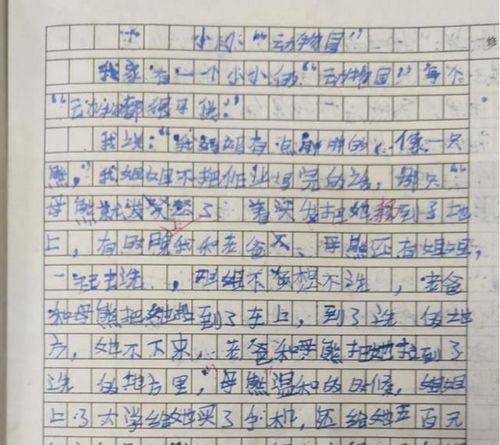 小小"动物园"
我家有一个小小的"动物园"每个
"动物都很可
我妈妈有点胖的,像一只
熊,"我姐姐不把作业写完的话,那只"
母熊就发怒了,着头发把她到了地
上,有时候我和老爸、母熊还有姐姐,
一起去洗,姐姐不想不洗,老爸
和母熊把她拉到了车上,到了洗的地
方,她不下来,老爸和母熊把她拉到了
洗的地方里,"母熊"温和的时候,姐姐
上了大学给她买了手机,还给她五百元